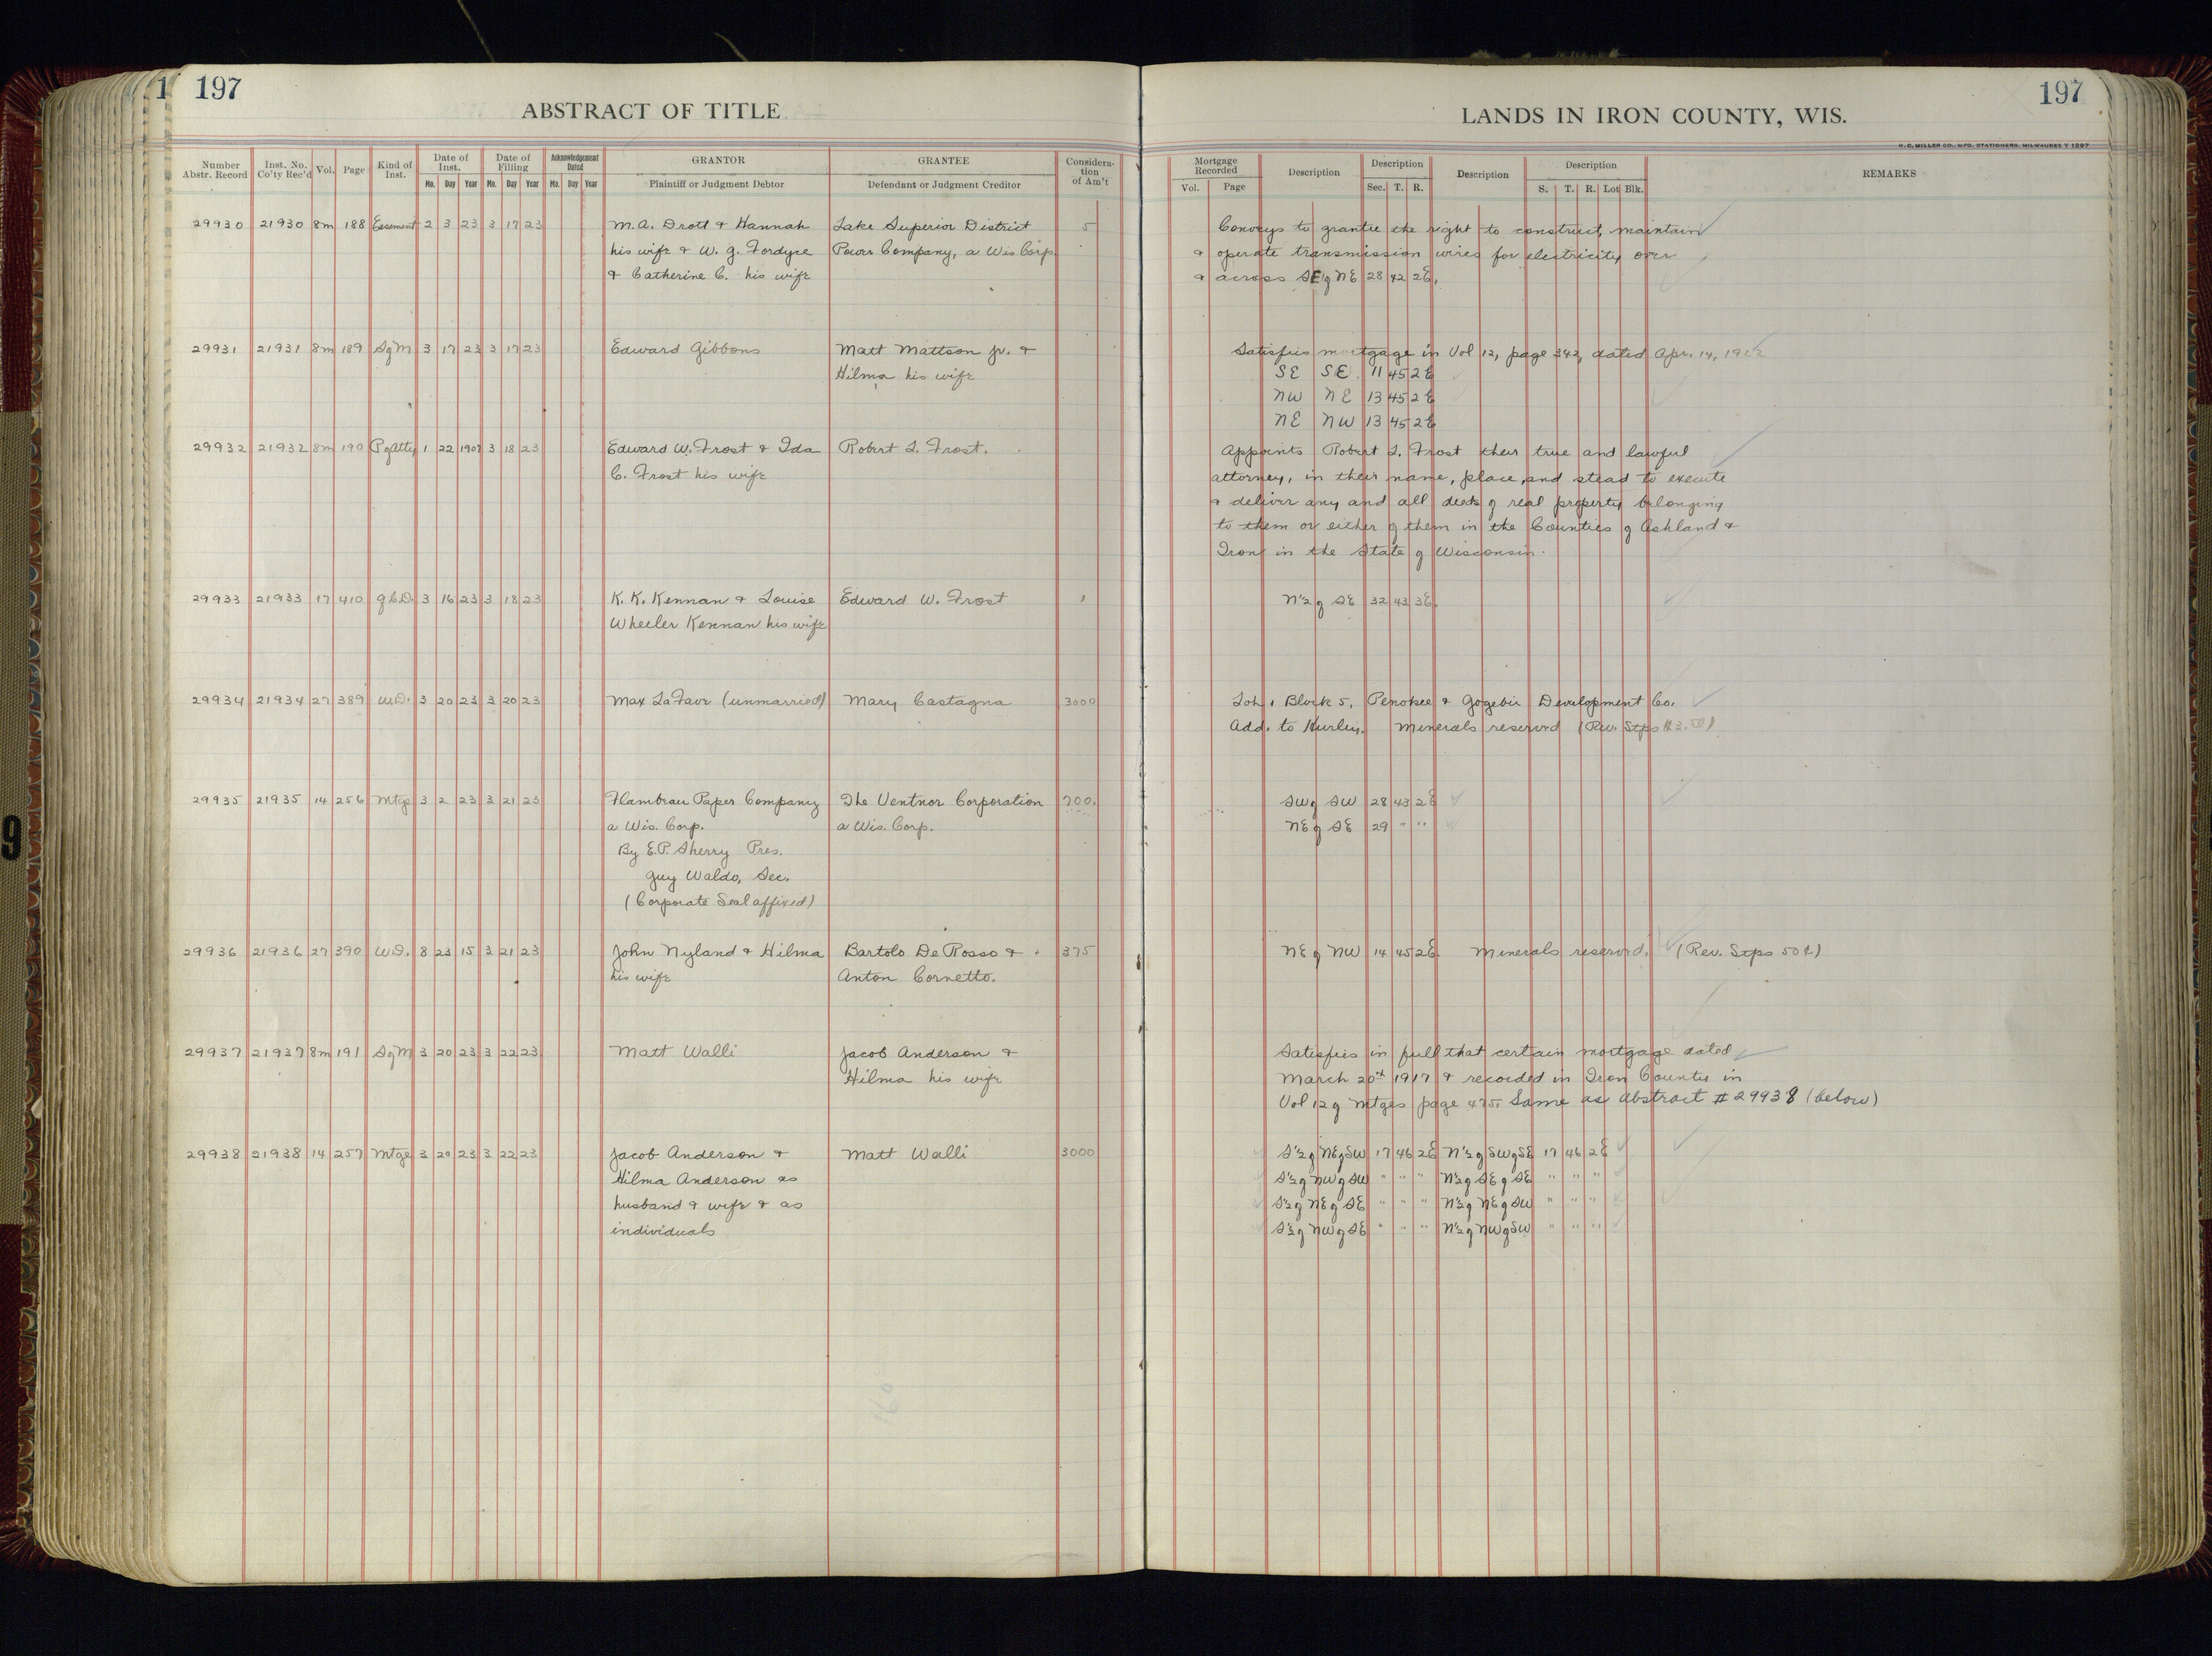 1 197
ABSTRACT OF TITLE
LANDS IN IRON COUNTY, WIS.
197
H. C. MILLER CO., MFG. STATIONERS, MILWAUKEE
Number Abstr. Record Inst. No. Co'ty Rec'd Vol. Page Kind of Inst. Date of Inst. Date of Filling Acknowledgement Dated GRANTOR GRANTEE Considera-tion of Am't Mortgage Recorded Description Description Description Description REMARKS
Mo. Day Year Mo. Day Year Mo. Day Year Plaintiff or Judgment Debtor Defendant or Judgment Creditor Vol. Page Sec. T. R. S. T. R. Lot Blk.
29930 21930 8m 188 Easement 2 3 23 3 17 23 M. A. Drott & Hannah Lake Superior District 5 Conveys to grantee the right to construct, maintain
his wife & W. G. Fordyce Power Company, a Wis Corp. & operate transmission wires for electricity over
& Catherine C. his wife & across SE of NE 28 42 2E.
29931 21931 8m 189 S of M 3 17 23 3 17 23 Edward Gibbons Matt Mattson Jr. & Satisfies mortgage in Vol 12, page 342, dated Apr. 14, 1922
Hilma his wife SE SE 11 45 2E
NW NE 13 45 2E
NE NW 13 45 2E
29932 21932 8m 190 P of Atty 1 22 1907 3 18 23 Edward W. Frost & Ida Robert L. Frost. Appoints Robert L. Frost their true and lawful
C. Frost his wife attorney, in their name, place, and stead to execute
& deliver any and all deeds of real property belonging
to them or either of them in the Counties of Ashland &
Iron in the State of Wisconsin.
29933 21933 17 410 Q.C.D. 3 16 23 3 18 23 K. K. Kennan & Louise Edward W. Frost 1 N½ of SE 32 43 3E.
Wheeler Kennan his wife
29934 21934 27 389 W.D. 3 20 23 3 20 23 Max LaFave (unmarried) Mary Castagna 3000 Lot 1 Block 5, Penokee & Gogebic Development Co.
Add. to Hurley. Minerals reserved (Rev. Stps
29935 21935 14 256 Mtge 3 2 23 3 21 23 Flambeau Paper Company The Ventnor Corporation 700. SW of SW 28 43 2E
a Wis. Corp. a Wis. Corp. NE of SE 29 " "
By E.P. Sherry Pres.
Guy Waldo, Sec.
(Corporate Seal affixed)
29936 21936 27 390 W.D. 8 23 15 3 21 23 John Nyland & Hilma Bartolo De Rosso & 375 NE of NW 14 45 2E. Minerals reserved. (Rev. Stps 50¢)
his wife Anton Cornetto.
29937 21937 8m 191 S of M 3 20 23 3 22 23 Matt Walli Jacob Anderson & Satisfies in full that certain mortgage dated
Hilma his wife March 20th 1917 & recorded in Iron County in
Vol 12 of Mtges page 475. Same as Abstract # 29938 (below)
29938 21938 14 257 Mtge 3 20 23 3 22 23 Jacob Anderson & Matt Walli 3000 S½ of NE of SW 17 46 2E N½ of SW of SE 17 46 2E
Hilma Anderson as S½ of NW of SW " " " N½ of SE of SE " " "
husband & wife & as S½ of NE of SE " " " N½ of NE of SW " " "
individuals S½ of NW of SE " " " N½ of NW of SW " " "
9